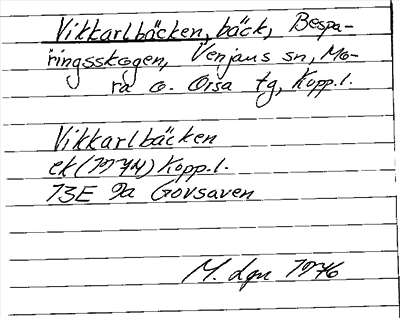 Vikkarlbäcken, bäck, Bespa-
ringsskogen, Venjans sn, Mo-
ra o. Orsa tg, Kopp.l.
Vikkarlbäcken
ek (1974) Kopp.l.
13E 9a Govsaven
M. 1976